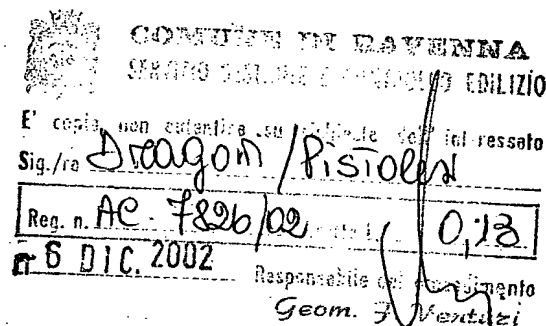 COMUNE DI RAVENNA
EDILIZIO
E' copia non autentica su richiesta dell'interessato
Sig./ra Dragoni / Pistolesi
Reg. n. AC - 7826/02 0,13
6 DIC. 2002 Responsabile del procedimento
Geom. F. Venturi